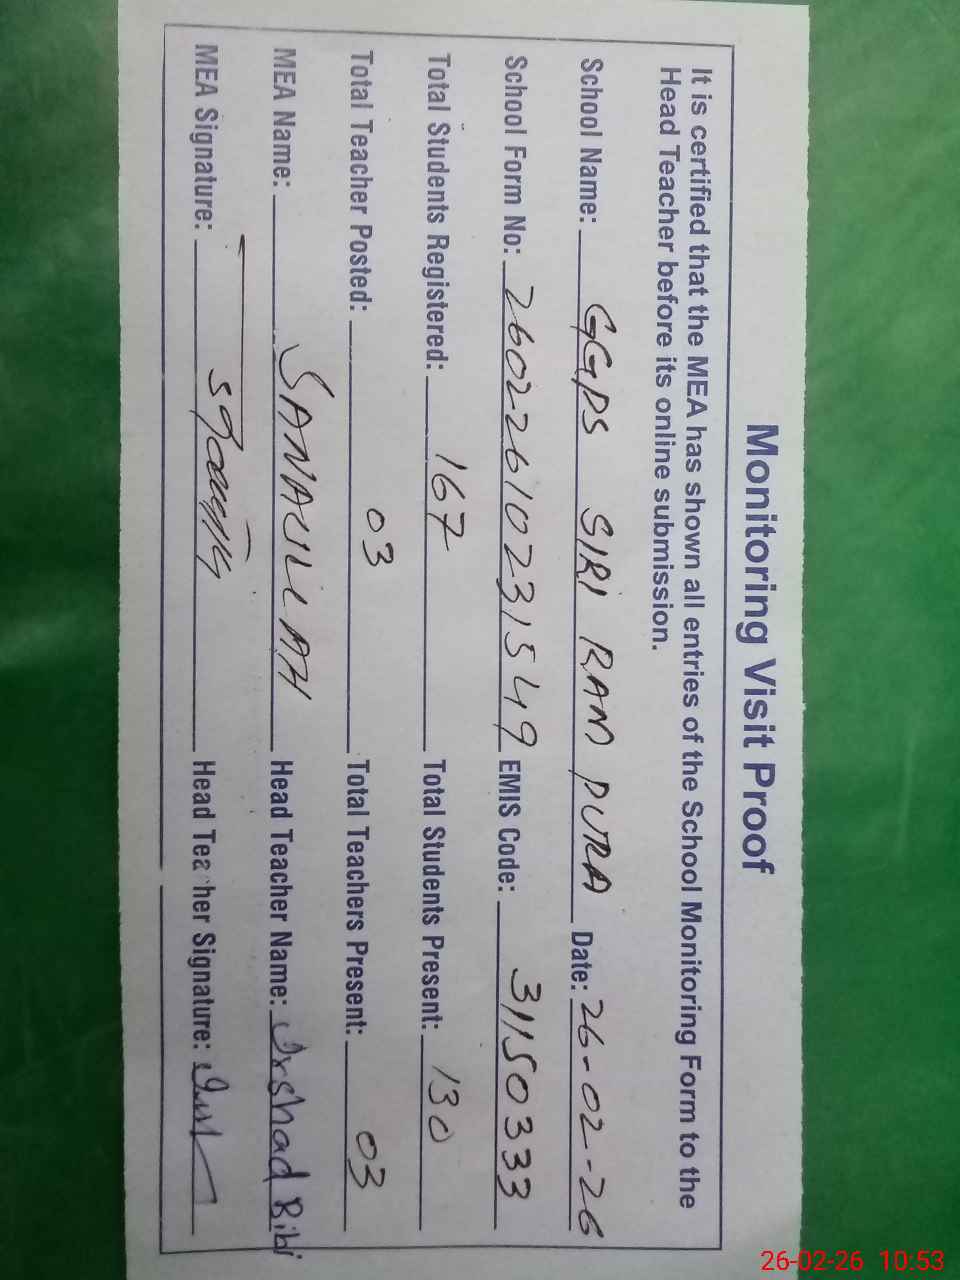 Monitoring Visit Proof
It is certified that the MEA has shown all entries of the School Monitoring Form to the
Head Teacher before its online submission.
School Name: GGPS SIRI RAM PURA Date: 26-02-26
School Form No: 26022610231549 EMIS Code: 31150333
Total Students Registered: 167 Total Students Present: 130
Total Teacher Posted: 03 Total Teachers Present: 03
MEA Name: SANAULLAH Head Teacher Name: Irshad Bibi
MEA Signature: Head Teacher Signature:
26-02-26 10:53